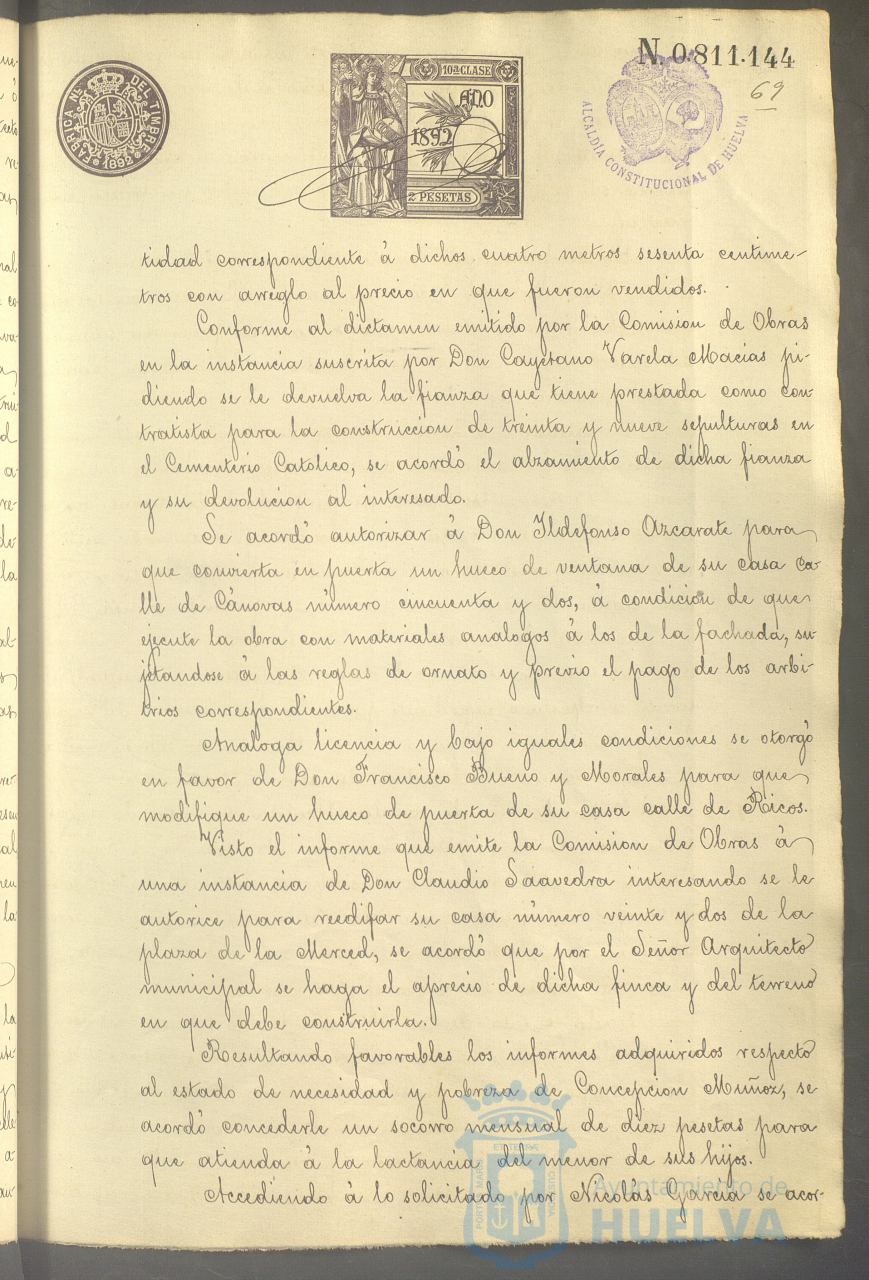 N. 0.811.144
69
FÁBRICA NAL. DEL TIMBRE
1892
10ª CLASE
AÑO
1892
2 PESETAS
ALCALDIA CONSTITUCIONAL DE HUELVA
tidad correspondiente á dichos cuatro metros sesenta centime-
tros con arreglo al precio en que fueron vendidos.
Conforme al dictamen emitido por la Comision de Obras
en la instancia suscrita por Don Cayetano Varela Macias pi-
diendo se le devuelva la fianza que tiene prestada como con-
tratista para la construccion de treinta y nueve sepulturas en
el Cementerio Catolico, se acordó el alzamiento de dicha fianza
y su devolucion al interesado.
Se acordó autorizar á Don Ildefonso Azcarate para
que convierta en puerta un hueco de ventana de su casa ca-
lle de Cánovas número cincuenta y dos, á condicion de que
ejecute la obra con materiales analogos á los de la fachada, su-
jetandose á las reglas de ornato y previo el pago de los arbi-
trios correspondientes.
Analoga licencia y bajo iguales condiciones se otorgó
en favor de Don Francisco Bueno y Morales para que
modifique un hueco de puerta de su casa calle de Ricos.
Visto el informe que emite la Comision de Obras á
una instancia de Don Claudio Saavedra interesando se le
autorice para reedifar su casa número veinte y dos de la
plaza de la Merced, se acordó que por el Señor Arquitecto
municipal se haga el aprecio de dicha finca y del terreno
en que debe construirla.
Resultando favorables los informes adquiridos respecto
al estado de necesidad y pobreza de Concepcion Muñoz, se
acordó concederle un socorro mensual de diez pesetas para
que atienda á la lactancia del menor de sus hijos.
Accediendo á lo solicitado por Nicolás Garcia se acor-
Ayuntamiento de
HUELVA